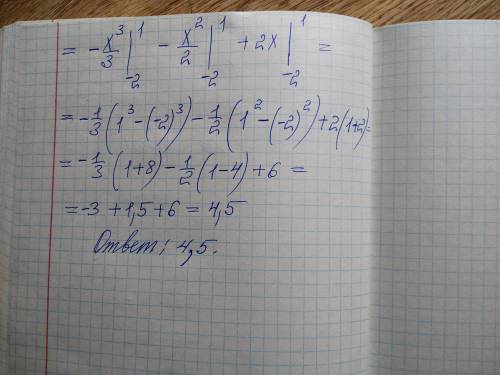 = -x³/3 |₋₂¹ - x²/2 |₋₂¹ + 2x |₋₂¹ =
= -1/3 (1³-(-2)³) - 1/2 (1²-(-2)²) + 2(1+2) =
= -1/3 (1+8) - 1/2 (1-4) + 6 =
= -3 + 1,5 + 6 = 4,5
Ответ: 4,5.